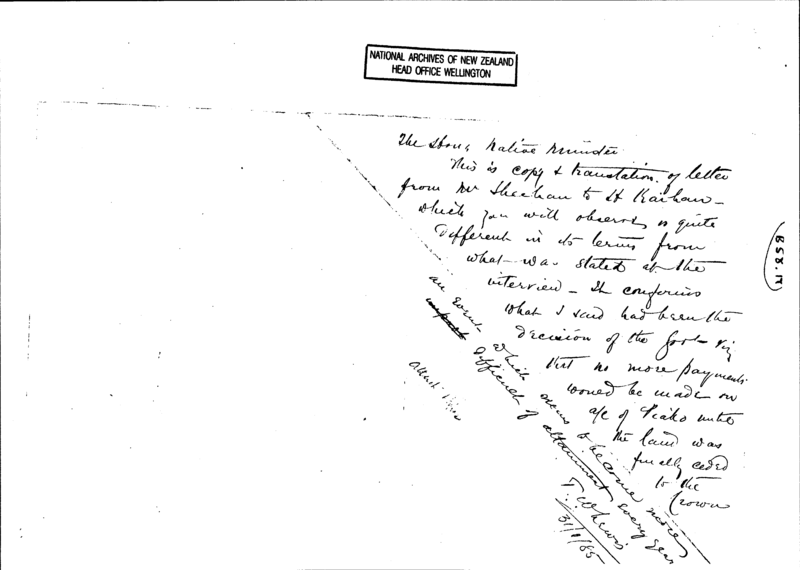 NATIONAL ARCHIVES OF NEW ZEALAND
HEAD OFFICE WELLINGTON
The Honb Native Minister
This is copy & translation of letter
from Mr Sheehan to H Kaihau –
which you will observe is quite
different in its terms from
what was stated at the
interview – It confirms
what I said had been the
decision of the Govt viz
that no more payments
would be made on
a/c of Piako until
the land was
finally ceded
to the
Crown
an event which seems to become more
difficult of attainment every year
T. W Lewis
31/1/85
B 58.17